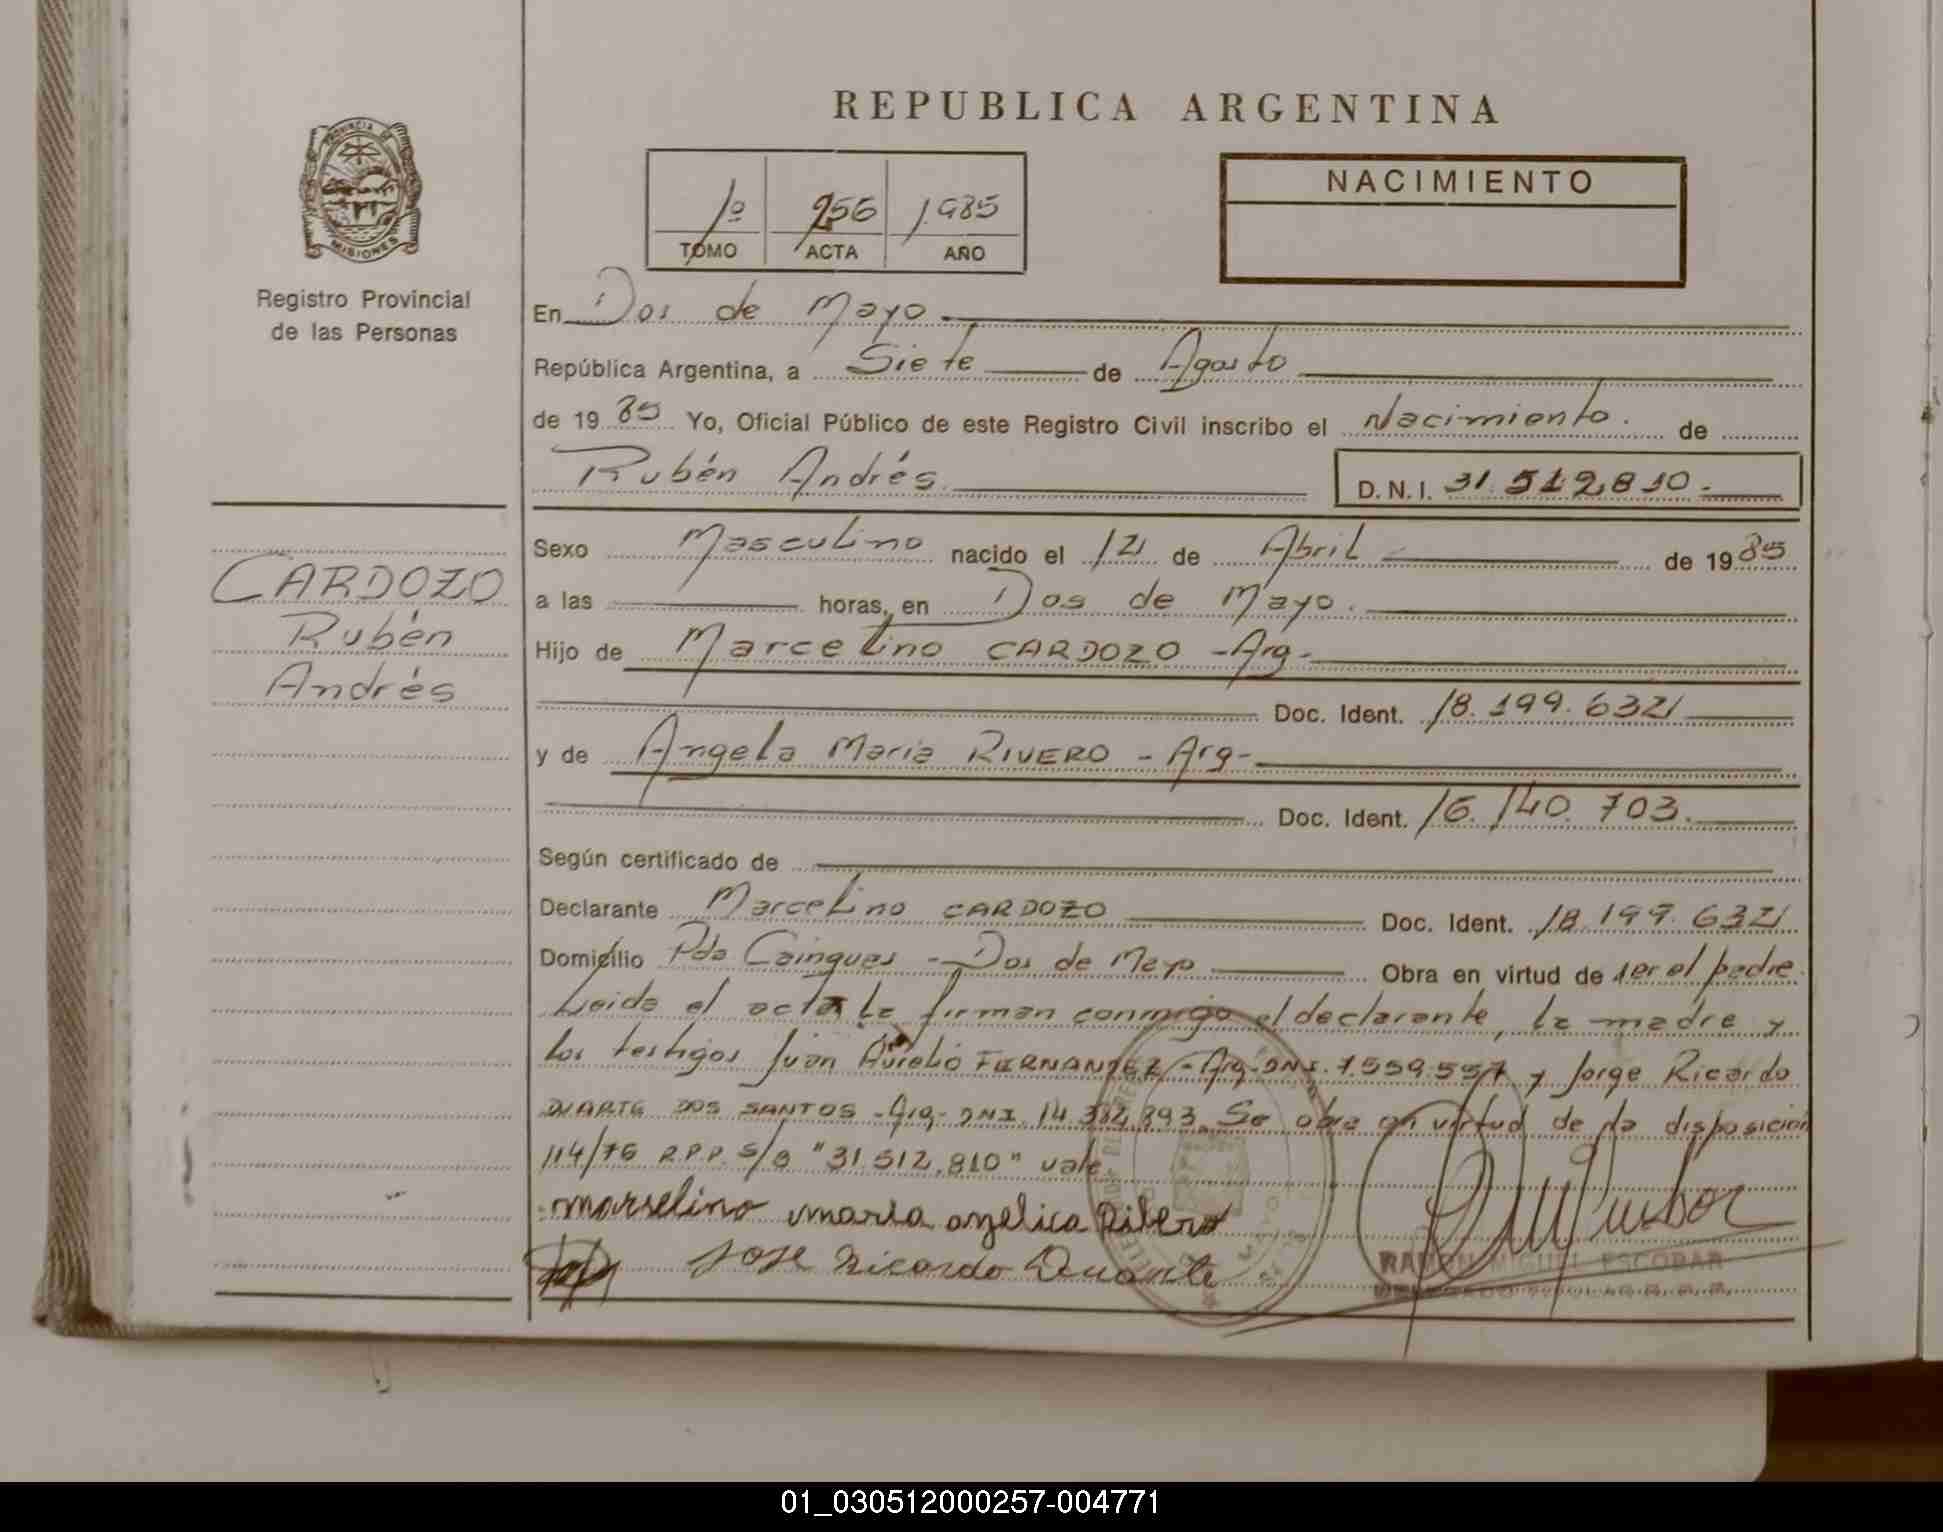 REPUBLICA ARGENTINA
PROVINCIA DE
MISIONES
Registro Provincial
de las Personas
1º 256 1.985
TOMO ACTA AÑO
NACIMIENTO
En Dos de Mayo
República Argentina, a Siete de Agosto
de 19 85 Yo, Oficial Público de este Registro Civil inscribo el Nacimiento. de
Rubén Andrés. D.N.I. 31.512.810.-
Sexo Masculino nacido el 12 de Abril de 19 85
a las horas, en Dos de Mayo.
Hijo de Marcelino CARDOZO -Arg-
Doc. Ident. 18.199.632
y de Angela Maria RIVERO - Arg-
Doc. Ident. 16.140.703.
Según certificado de
Declarante Marcelino CARDOZO Doc. Ident. 18.199.632
Domicilio Pda Cainguas - Dos de Mayo Obra en virtud de ser el padre.
Leida el acta la firman conmigo el declarante, la madre y
los testigos Juan Aurelio FERNANDEZ -Arg- DNI. 7.559.557 y Jorge Ricardo
DUARTE DOS SANTOS -Arg- DNI. 14.382.893. Se obra en virtud de la disposición
114/76 R.P.P. S/B "31.512.810" vale.
marselino maria angelica Ribero
Jose Ricardo Duarte
RAMON MIGUEL ESCOBAR
DELEGADO TITULAR R. P. P.
CARDOZO
Rubén
Andrés
01_030512000257-004771